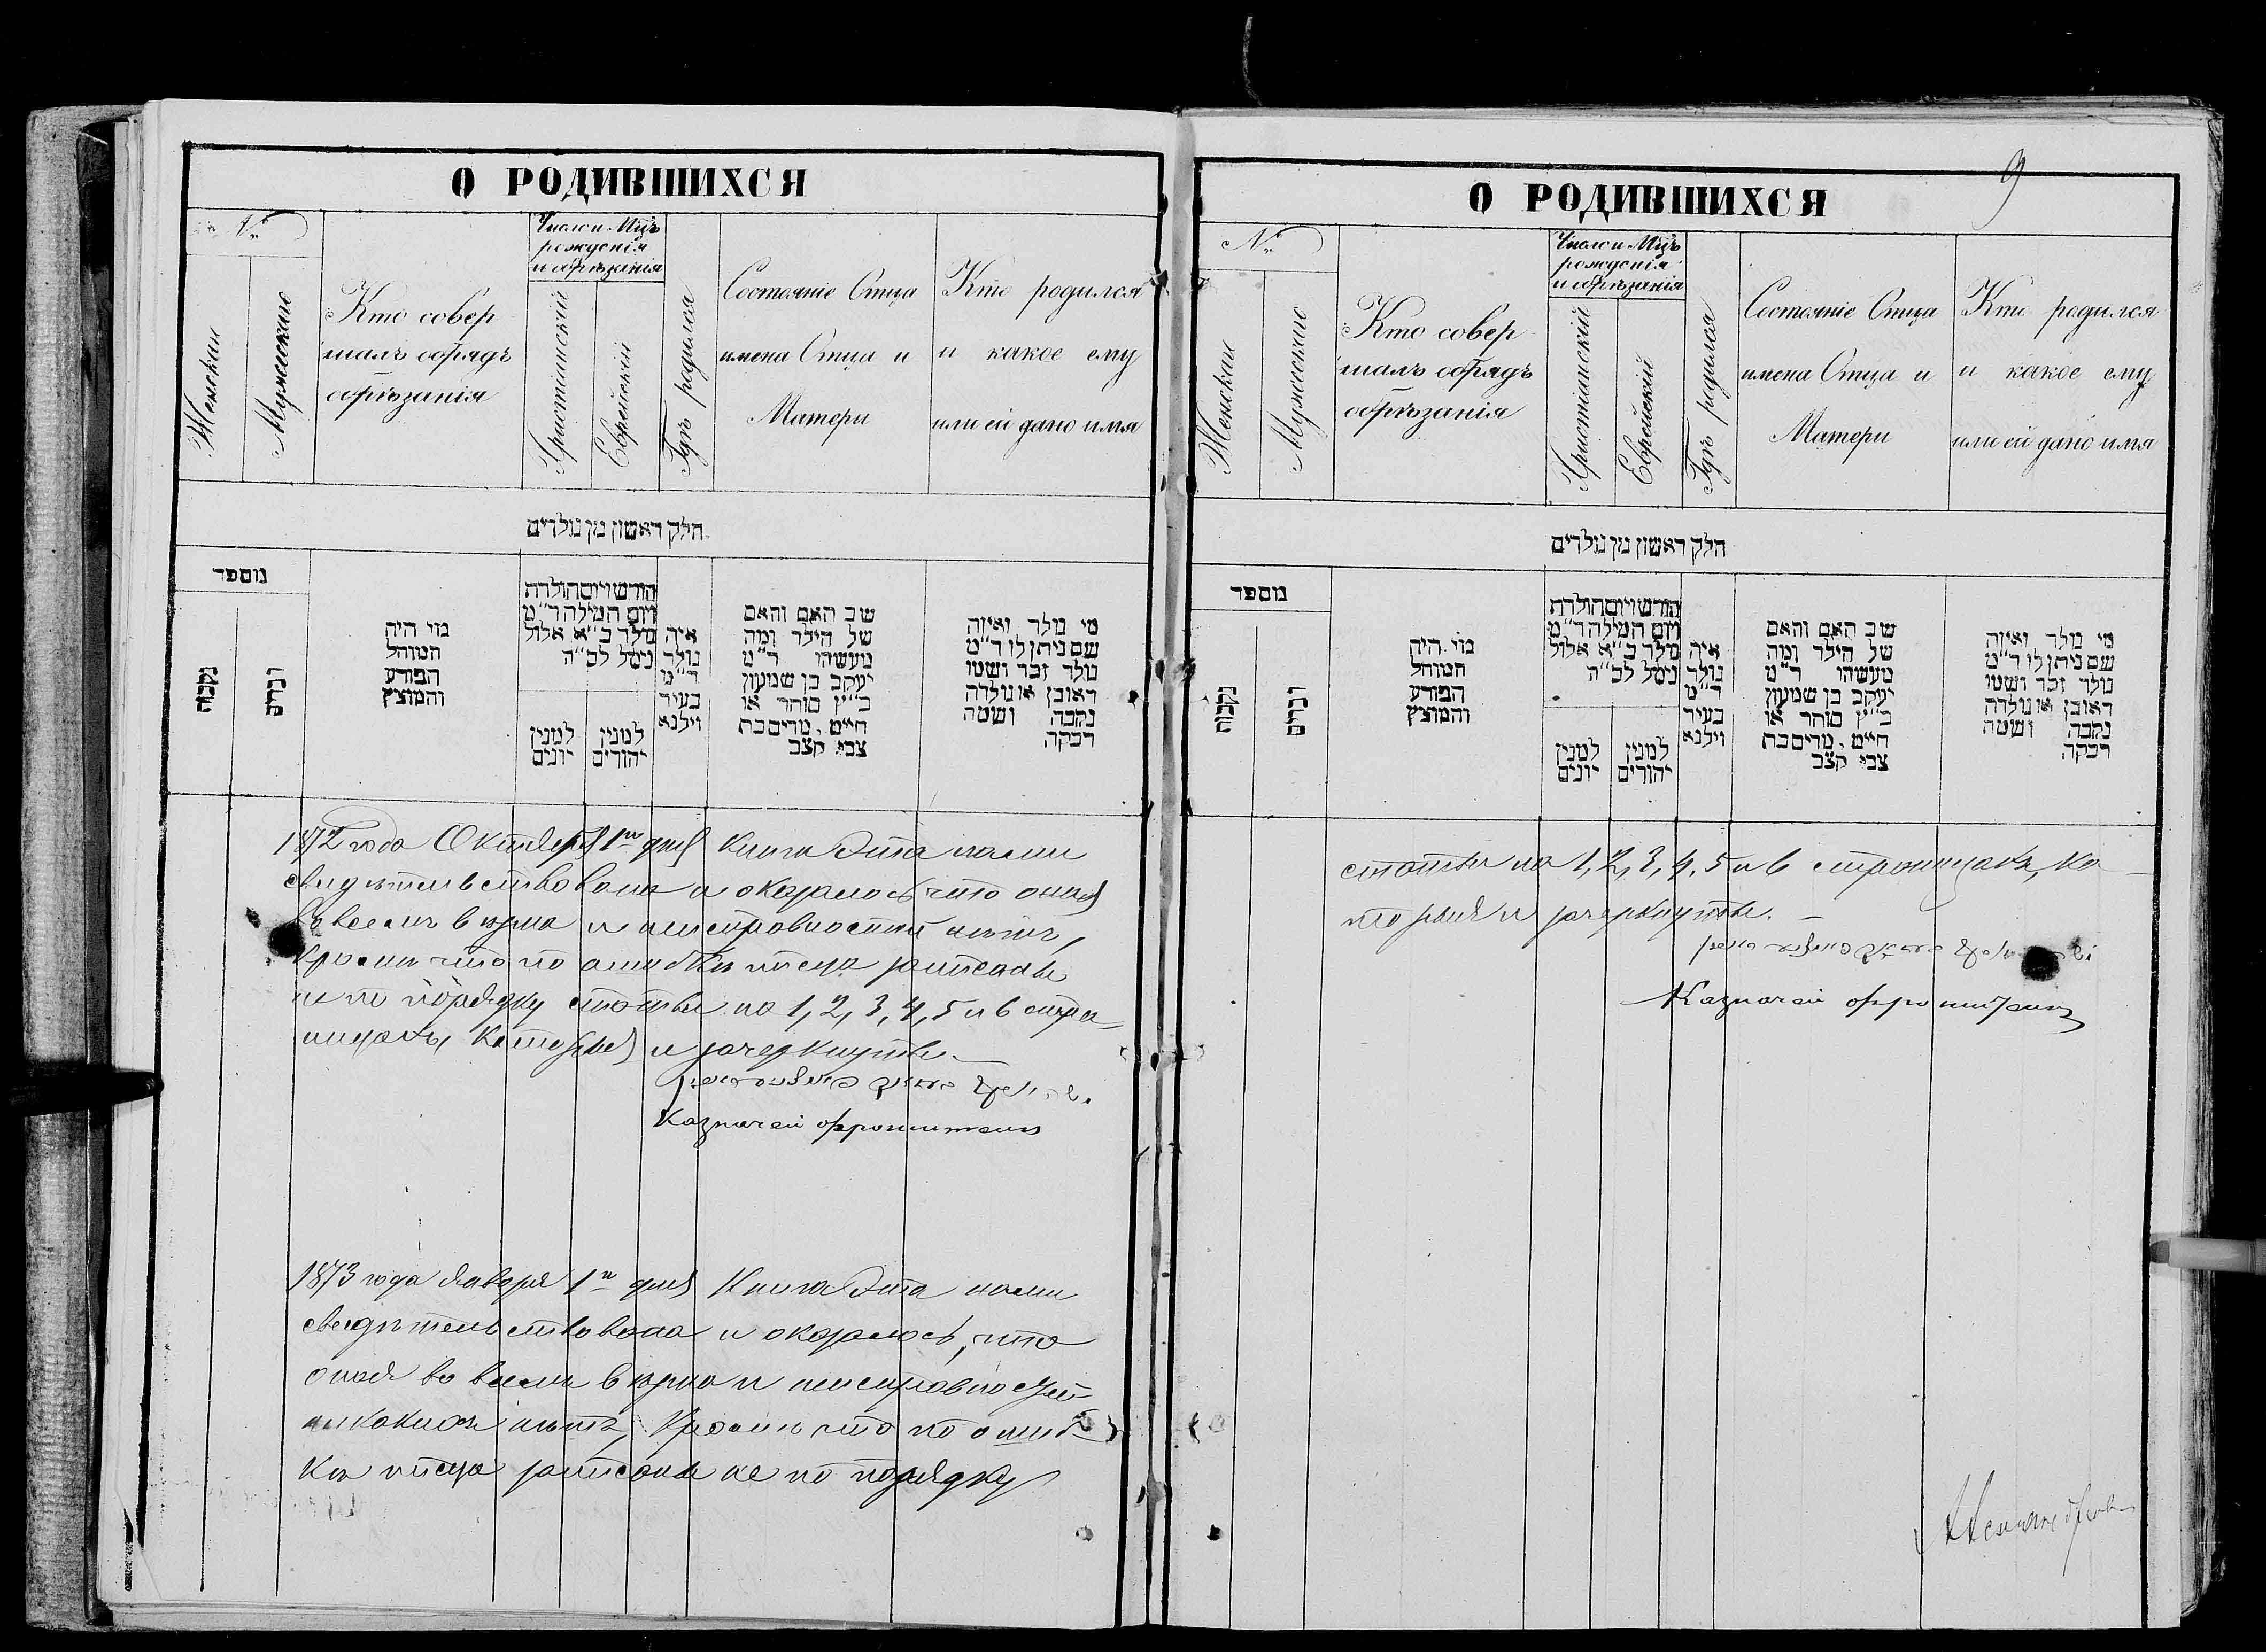 О РОДИВШИХСЯ
№
Женскаи
Мужескаго
Кто совер
шалъ обрядъ
обрѣзанія
Число и Мцъ
рожденія
и обрѣзанія
Христіанскій
Еврейскій
Гдѣ родился
Состояніе Отца
имена Отца и
Матери
Кто родился
и какое ему
или ей дано имя
חלק ראשון מן נולדים
מספר
נקבות
זכרים
מי היה
המוהל
הפורע
והמוצץ
חודש ויום הולדת
ויום המילה ד"מ
נולד כ"א אלול
נימל לס"ה
למנין
יונים
למנין
יהודים
איה
נולד
ד"מ
בעיר
ווילנא
שב האם והאם
של הילד ומה
מעשהו ד"מ
יעקב בן שמעון
כ"ץ סוחר או
חייט, מרים בת
צבי קצב
מי נולד ואיזה
שם ניתן לו ד"מ
נולד זכר ושמו
ראובן או נולדה
נקבה ושמה
רבקה
1872 года Октября 1го дня книга эта нами
свидѣтельствована и оказалось что оная
во всемъ вѣрна и неисправностей нѣтъ,
кромѣ что по ошибкѣ писца записаны
не по порядку статьи на 1, 2, 3, 4, 5 и 6 стра-
ницахъ, которыя и зачеркнуты.
Казначей
1873 года Января 1го дня Книга эта нами
свидѣтельствована и оказалось, что
оная во всемъ вѣрна и неисправностей
никакихъ нѣтъ, кромѣ что по ошиб-
кѣ писца записаны не по порядку
9
О РОДИВШИХСЯ
№
Женскаи
Мужескаго
Кто совер
шалъ обрядъ
обрѣзанія
Число и Мцъ
рожденія
и обрѣзанія
Христіанскій
Еврейскій
Гдѣ родился
Состояніе Отца
имена Отца и
Матери
Кто родился
и какое ему
или ей дано имя
חלק ראשון מן נולדים
מספר
נקבות
זכרים
מי היה
המוהל
הפורע
והמוצץ
חודש ויום הולדת
ויום המילה ד"מ
נולד כ"א אלול
נימל לס"ה
למנין
יונים
למנין
יהודים
איה
נולד
ד"מ
בעיר
ווילנא
שב האם והאם
של הילד ומה
מעשהו ד"מ
יעקב בן שמעון
כ"ץ סוחר או
חייט, מרים בת
צבי קצב
מי נולד ואיזה
שם ניתן לו ד"מ
נולד זכר ושמו
ראובן או נולדה
נקבה ושמה
רבקה
статьи на 1, 2, 3, 4, 5 и 6 страницахъ, ко-
торыя и зачеркнуты. –
Казначей